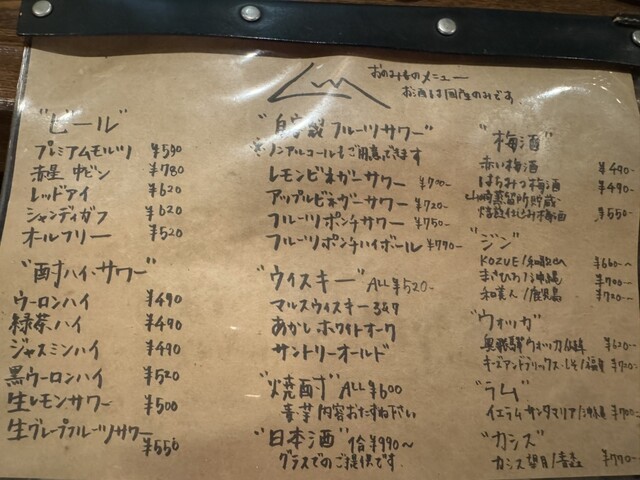 おのみものメニュー
お酒は国産のみです。
"ビール"
プレミアムモルツ ¥590
赤星 中ビン ¥780
レッドアイ ¥620
シャンディガフ ¥620
オールフリー ¥520
"酎ハイ・サワー"
ウーロンハイ ¥490
緑茶ハイ ¥490
ジャスミンハイ ¥490
黒ウーロンハイ ¥520
生レモンサワー ¥500
生グレープフルーツサワー ¥550
"自家製フルーツサワー"
※ノンアルコールもご用意できます
レモンビネガーサワー ¥700-
アップルビネガーサワー ¥720-
フルーツポンチサワー ¥750-
フルーツポンチハイボール ¥790-
"ウイスキー" ALL ¥520-
マルスウイスキー 3&7
あかし ホワイトオーク
サントリーオールド
"焼酎" ALL ¥600
麦・芋/内容おたずね下さい
"日本酒" 1合 ¥990~
グラスでのご提供です
"梅酒"
赤い梅酒 ¥490-
はちみつ梅酒 ¥490-
山崎蒸留所貯蔵
焙煎仕込み梅酒 ¥550-
"ジン"
KOZUE/和歌山 ¥660~
まさひろ/沖縄 ¥700-
和美人/鹿児島 ¥700-
"ウォッカ"
奥飛騨ウォッカ/岐阜 ¥620-
キーズアンドブリックス ¥700-
"ラム"
イエラム サンタマリア/沖縄 ¥700-
"カシス"
カシス望月/青森 ¥770-